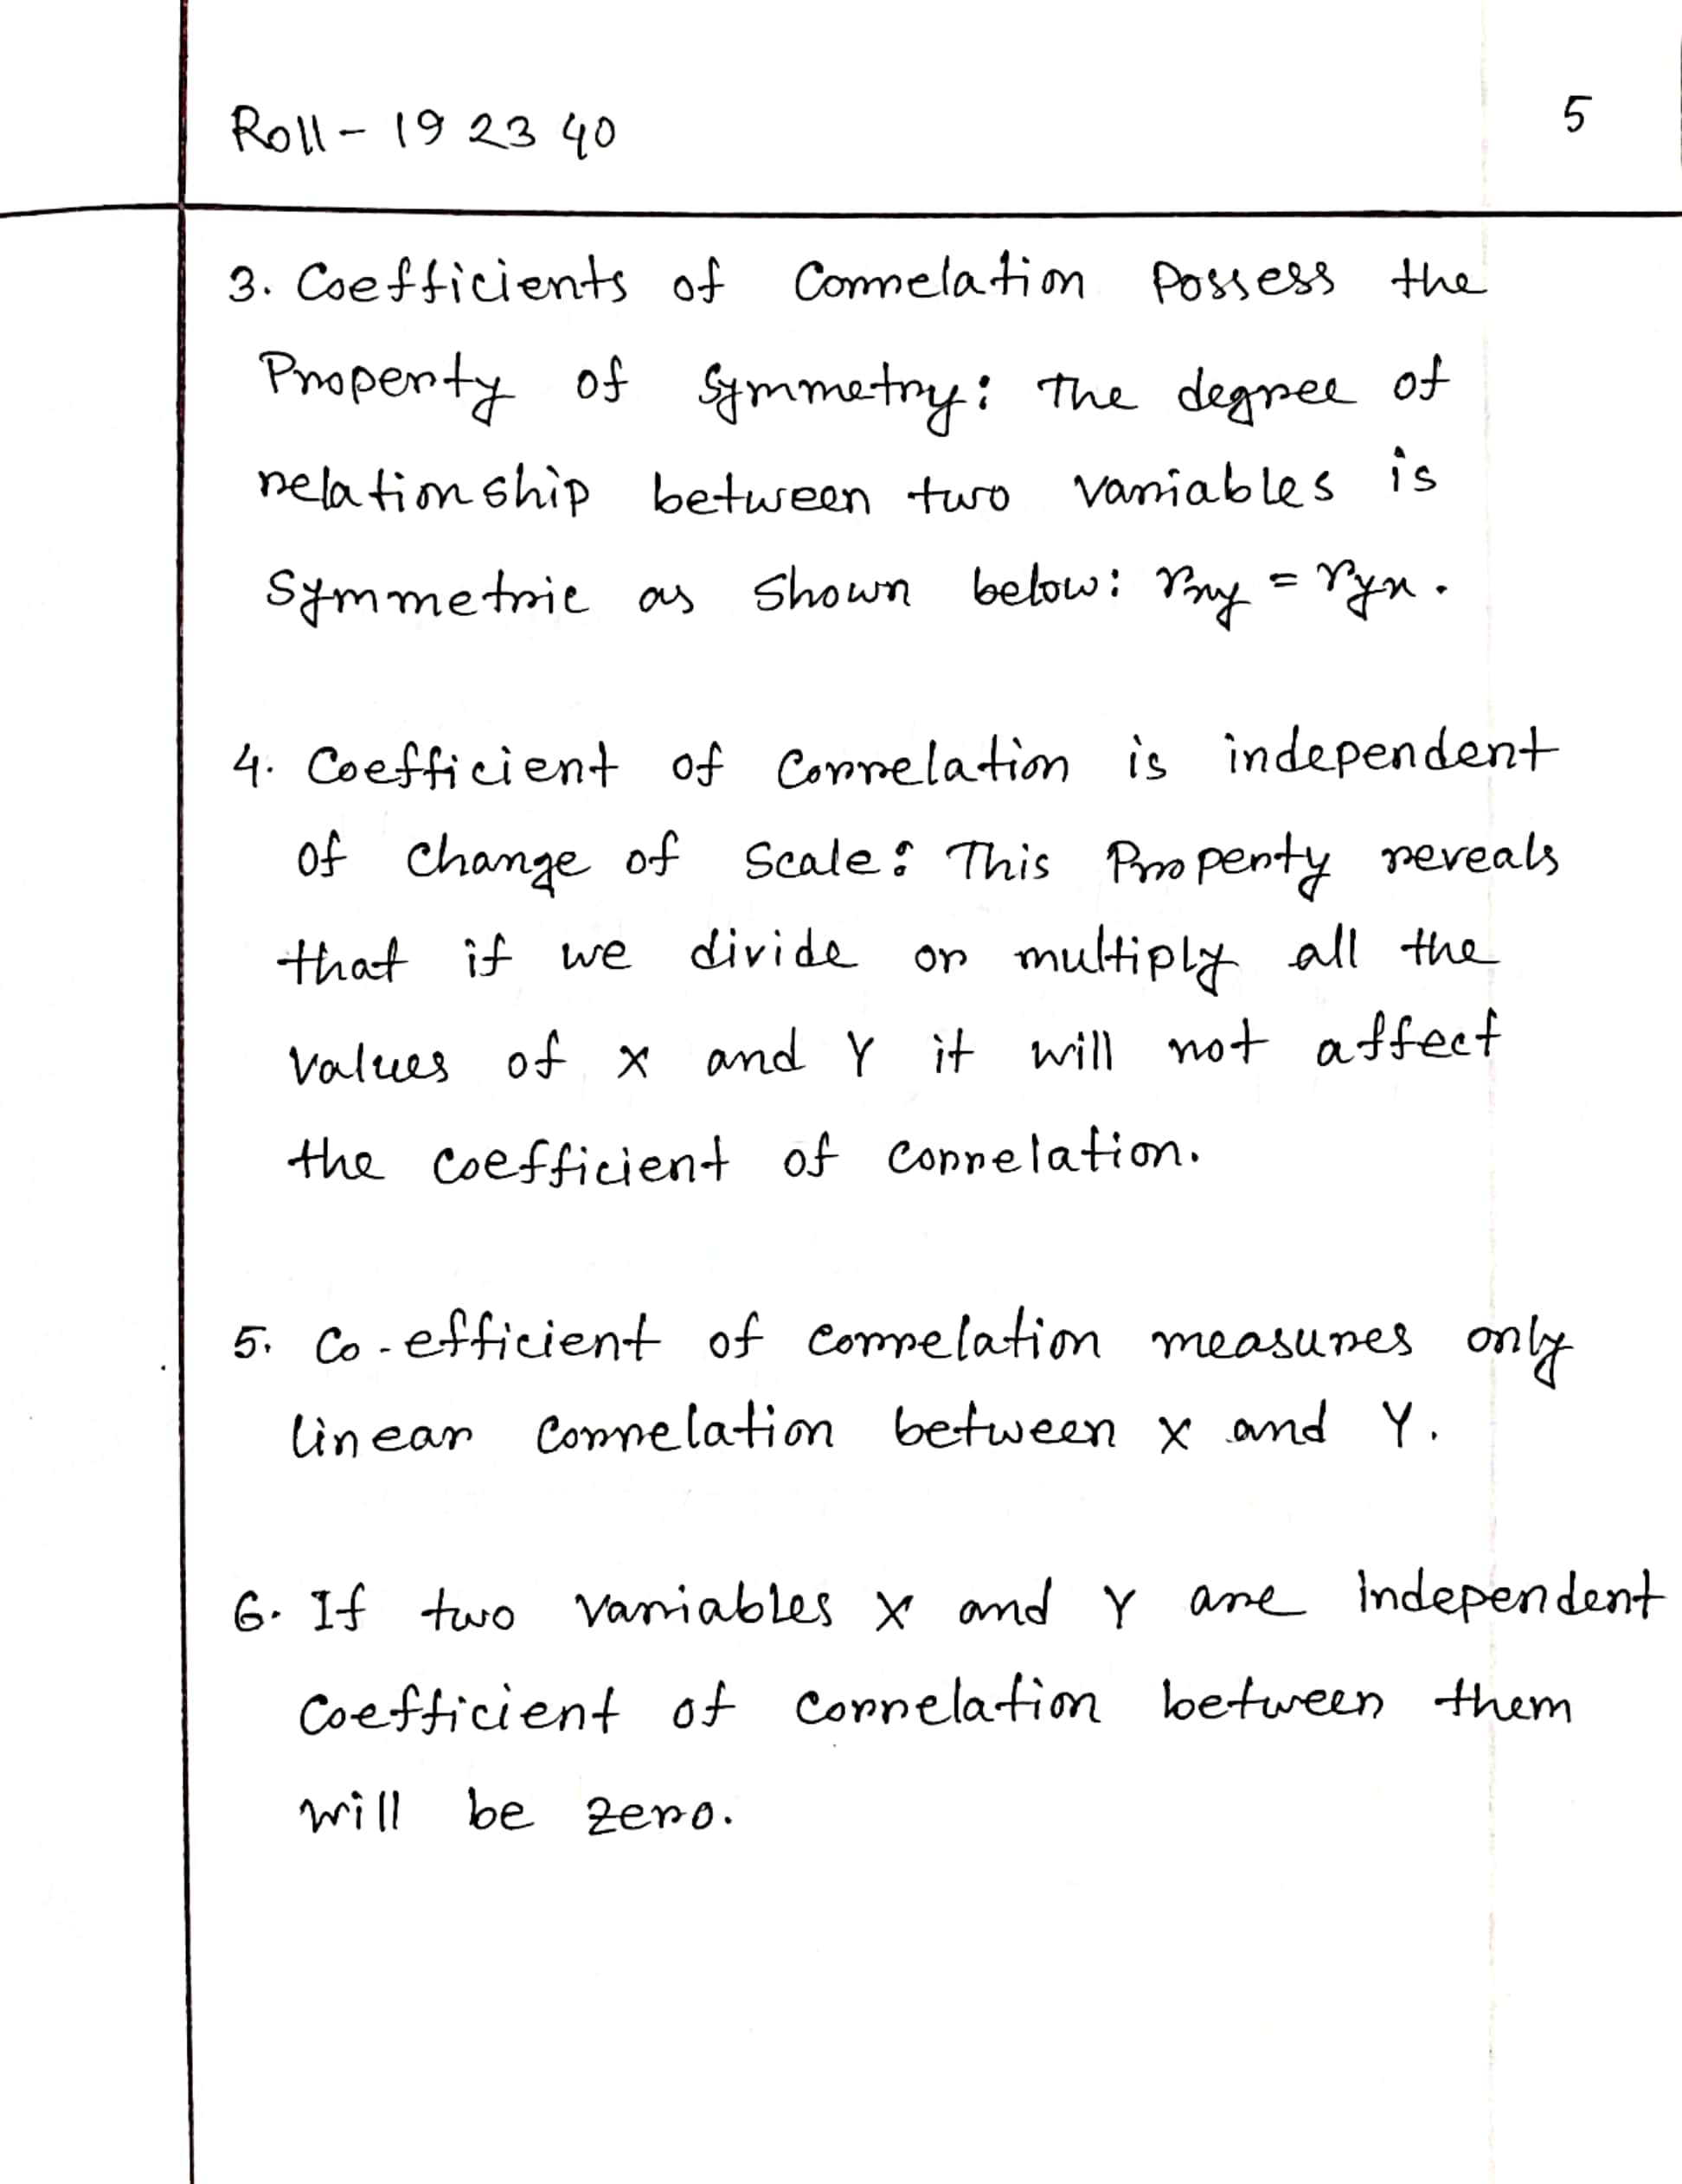 Roll - 19 23 40
5
3. Coefficients of Correlation Possess the
Property of Symmetry: The degree of
relationship between two variables is
Symmetric as shown below: rxy = ryx.
4. Coefficient of Correlation is independent
of change of Scale: This Property reveals
that if we divide or multiply all the
values of X and Y it will not affect
the coefficient of correlation.
5. Co-efficient of correlation measures only
linear correlation between X and Y.
6. If two variables X and Y are Independent
Coefficient of correlation between them
will be zero.